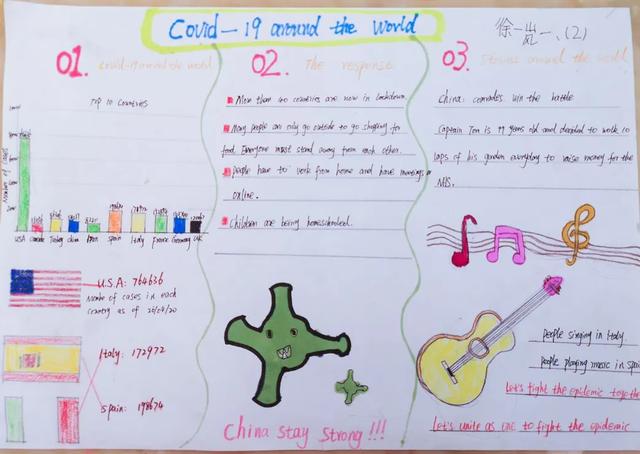 Covid-19 around the world
徐一 一、(2)
01. Covid-19 around the world
Top 10 Countries
Number of cases
USA Canada Turkey China Iran Spain Italy France Germany UK
U.S.A: 764636
Number of cases in each
country as of
Italy: 172972
Spain: 198674
02. The response
More than 40 countries are now in lockdown.
Many people can only go outside to go shopping for
food. Everyone must stand away from each other.
People have to work from home and have meetings
online.
Children are being homeschooled.
China stay strong!!!
03. Stories around the world
China: comrades win the battle
Captain Tom is 99 years old and decided to walk 10
laps of his garden everyday to raise money for the
NHS.
People singing in Italy.
People playing music in Spain
Let's fight the epidemic togethe
Let's unite as one to fight the epidemic